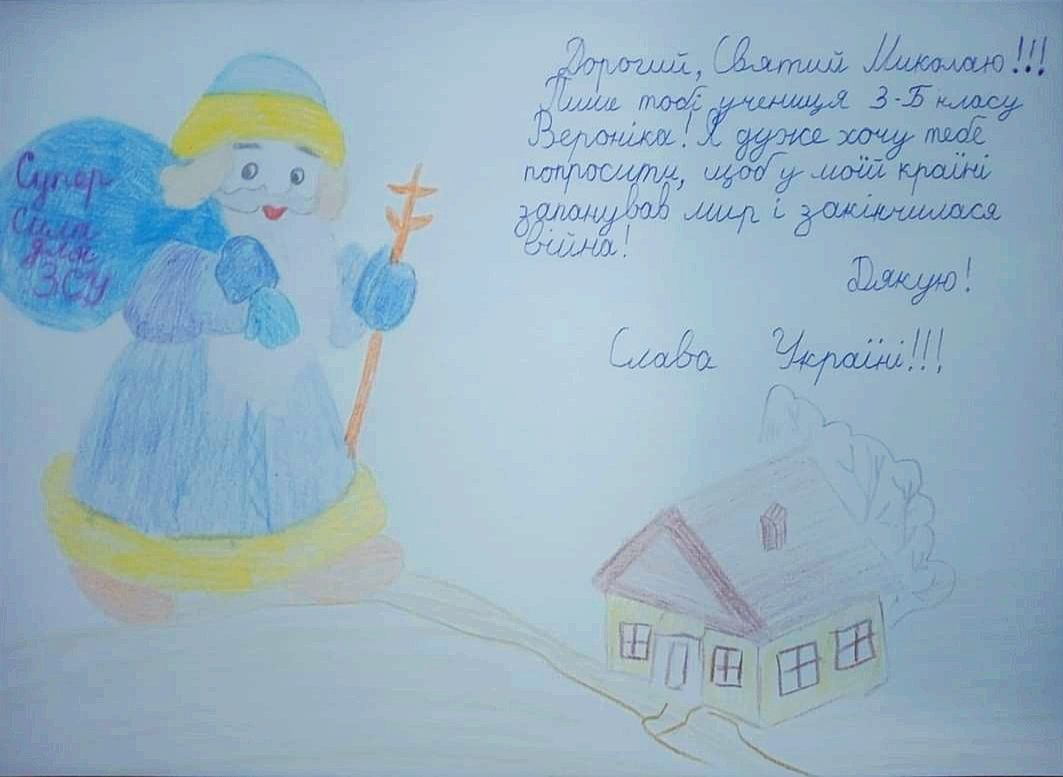 Дорогий, Святий Миколаю!!!
Пише тобі учениця 3-Б класу
Вероніка! Я дуже хочу тебе
попросити, щоб у моїй країні
запанував мир і закінчилася
війна!
Дякую!
Слава Україні!!!
Супер
Сила
для
ЗСУ